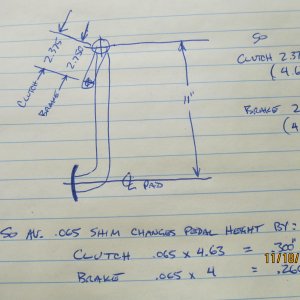 SO
CLUTCH 2.37
(4.6
BRAKE 2
(4
2.375
2.750
CLUTCH
BRAKE
11"
℄ PAD
SO AV. .065 SHIM CHANGES PEDAL HEIGHT BY:
CLUTCH .065 x 4.63 = .300"
BRAKE .065 x 4 = .260
11/18/